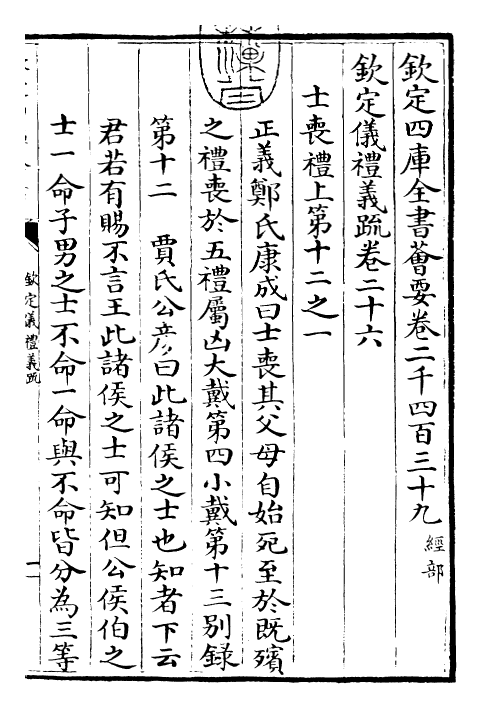 欽定四庫全書薈要卷二千四百三十九 經部
欽定儀禮義疏卷二十六
士喪禮上第十二之一
正義鄭氏康成曰士喪其父母自始死至於既殯
之禮喪於五禮屬凶大戴第四小戴第十三別錄
第十二 賈氏公彥曰此諸侯之士也知者下云
君若有賜不言王此諸侯之士可知但公侯伯之
士一命子男之士不命一命與不命皆分為三等
欽定儀禮義疏
一